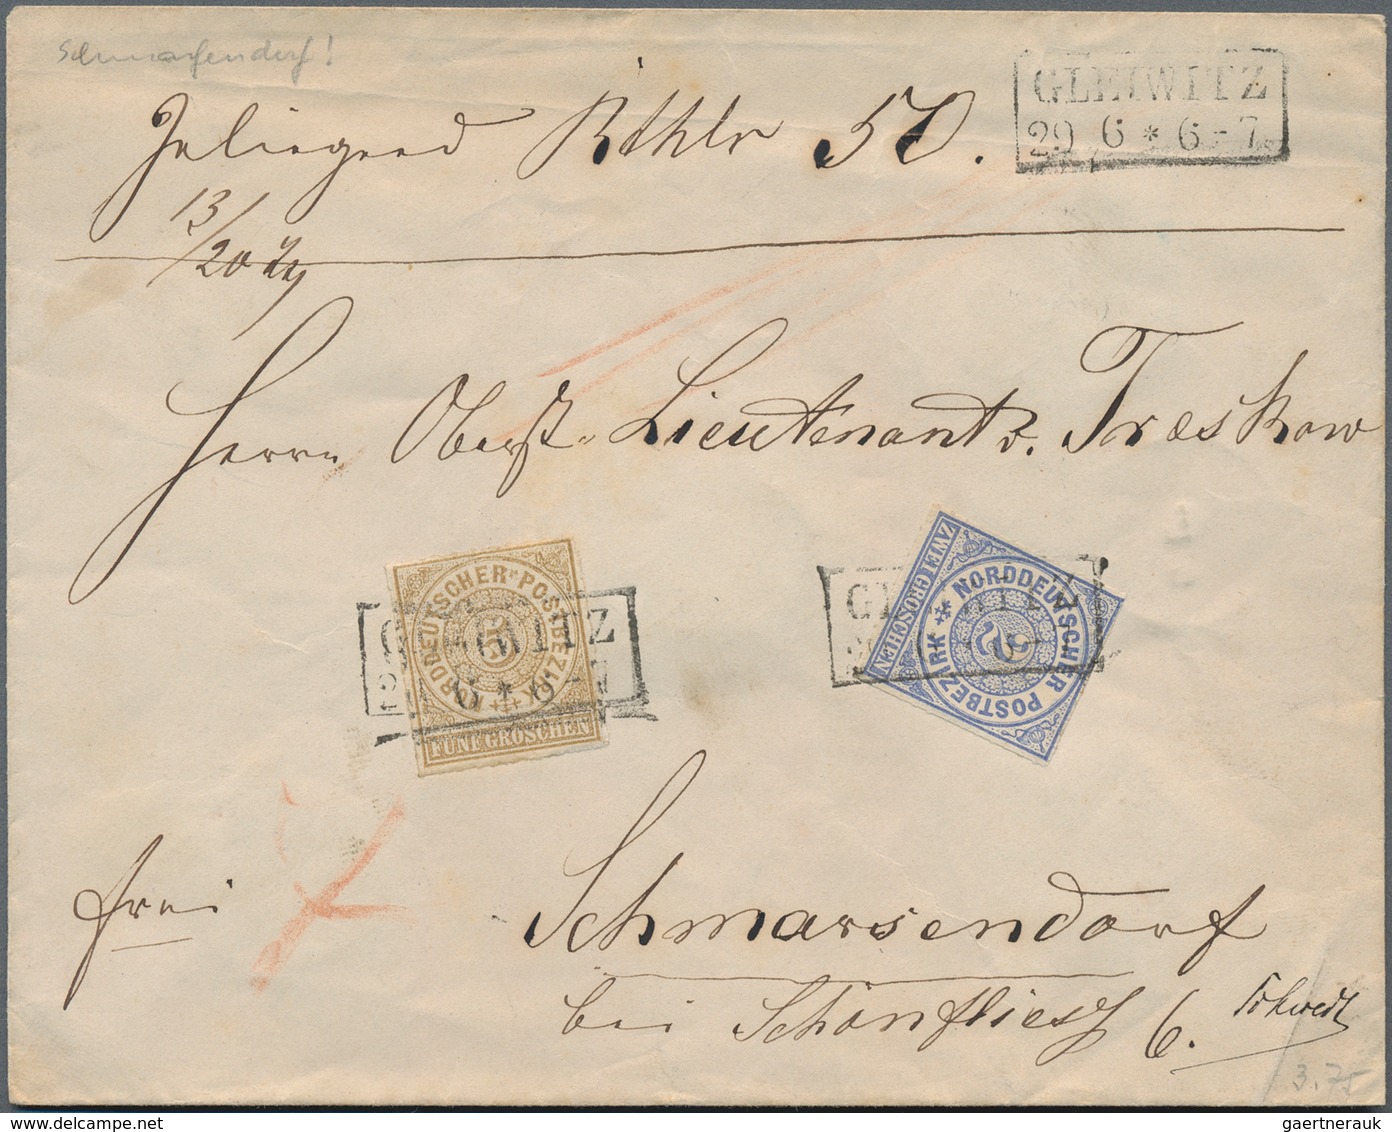 Schmarfendorf!
GLEIWITZ
29 6 * 6-7
Inliegend Rthlr 50.
13/20
Herrn Oberst-Lieutenant v. Treskow
GLEIWITZ
6 * 6-7
NORDDEUTSCHER * POSTBEZIRK
5
FÜNF GROSCHEN
NORDDEUTSCHER POSTBEZIRK
2
ZWEI GROSCHEN
frei
Schmarsendorf
bei Schönfliess
3.75
gaertnerauk